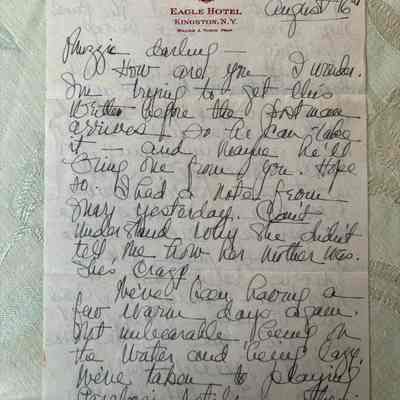 EAGLE HOTEL
KINGSTON, N.Y.
August 16th
darling —
How are you I wonder.
I'm trying to get this
written before the postman
arrives — so he can take
it — and maybe he'll
bring one from you. Hope
so. I had a note from
Mary yesterday. Can't
understand why she didn't
tell me how her mother was.
She's crazy
We've been having a
few warm days again.
Not unbearable being on
the water and being lazy.
We've taken to playing
until